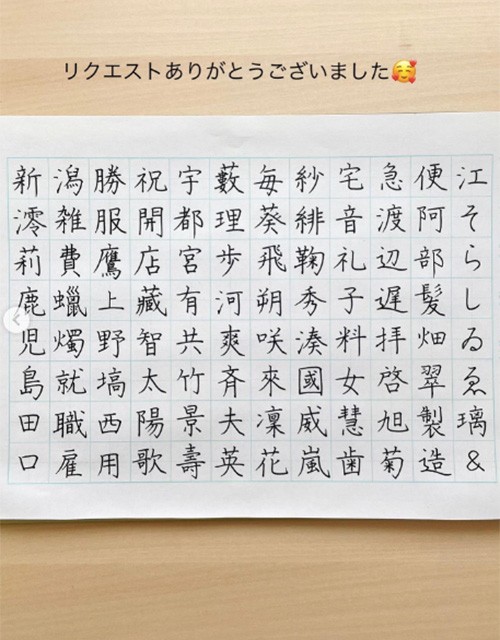 リクエストありがとうございました🥰
江そらしゐゑ璃&
便阿部髪畑翠製造
急渡辺遅拝啓旭菊
宅音礼子料女慧歯
紗緋鞠秀湊國威嵐
毎葵飛朔咲來凜花
藪理歩河爽斉夫英
宇都宮有共竹景壽
祝開店藏智太陽歌
勝服鷹上野塙西用
潟雑費蠟燭就職雇
新澪莉鹿児島田口